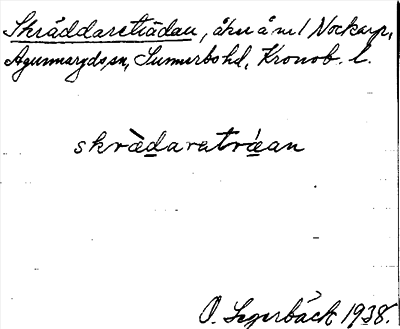 Skräddareträdan, åker å n:o 1 Nockarp,
Agunnaryds sn, Sunnerbo hd, Kronob. l.
skrädaraträan
O. Segerbäck 1938.